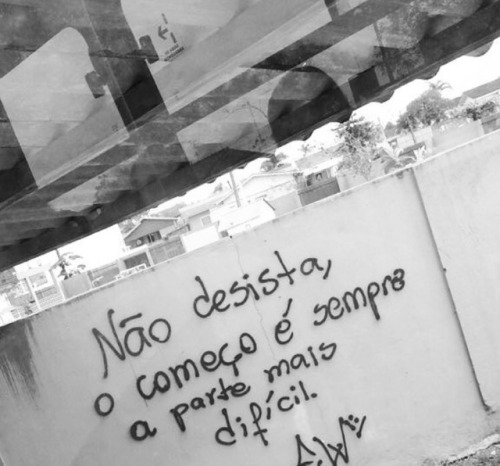 Não desista,
o começo é sempre
a parte mais
difícil.